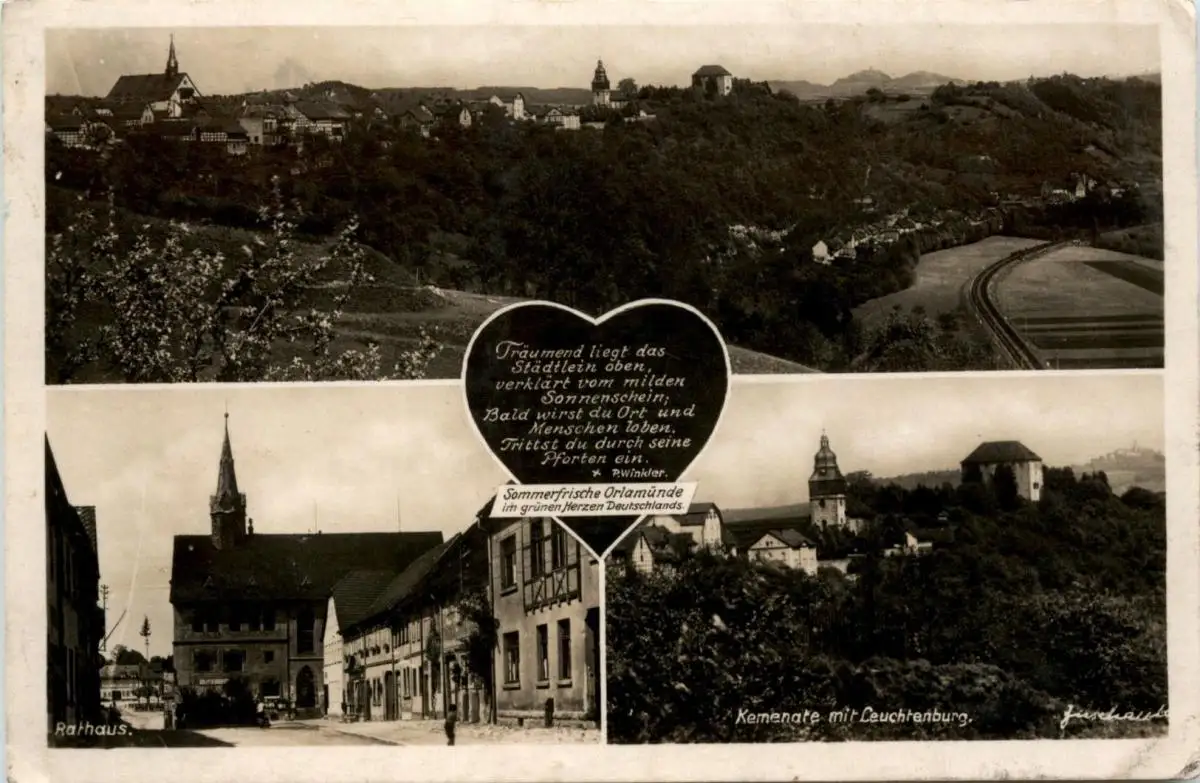 Träumend liegt das
Städtlein oben,
verklärt vom milden
Sonnenschein;
Bald wirst du Ort und
Menschen loben,
Trittst du durch seine
Pforten ein.
P. Winkler.
Sommerfrische Orlamünde
im grünen Herzen Deutschlands.
Rathaus.
Kemenate mit Leuchtenburg.